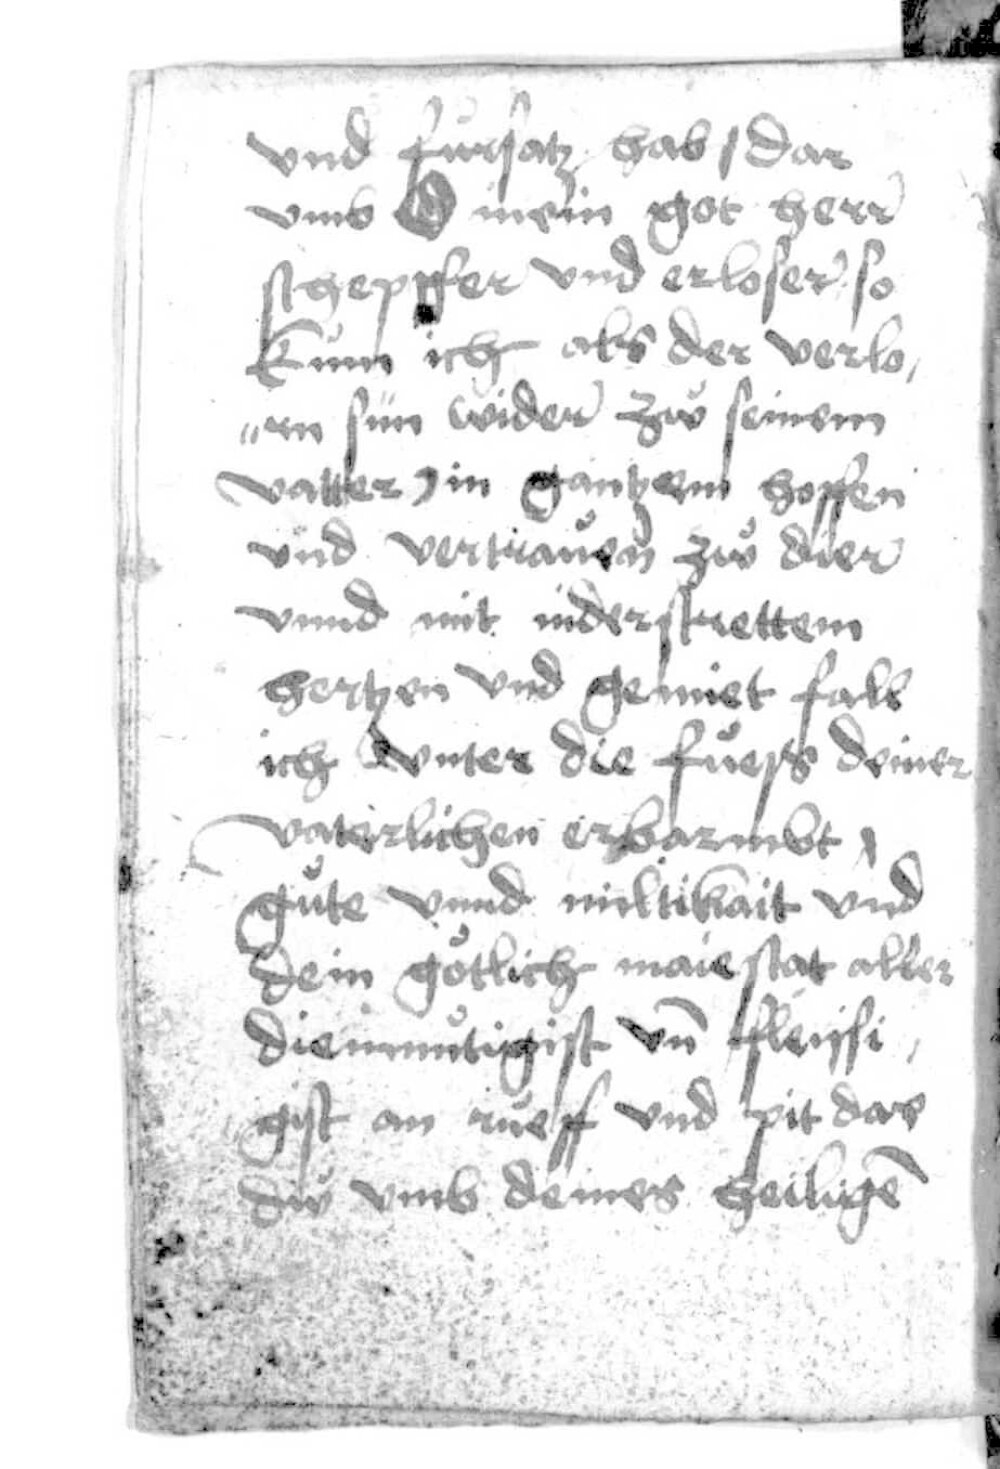 vnd fürsatz hab / dar
vmb O mein got herr
schepffer vnd erloser so
kum ich als der verlo,
„rn sün wider zw̆ seinem
vatter / in gantzem hoffen
vnd vertrauen zw̆ dier
vnnd mit niderstrettem
hertzen vnd gemiet fall
ich vnter die füess deiner
vaterlichen erbarmbt /
güte vnnd miltikait vnd
dein götlich maiestat aller
diemmütigist vn̄ fleissi ,
gist an rüeff vnd pit das
dw̆ vmb deines heiligē